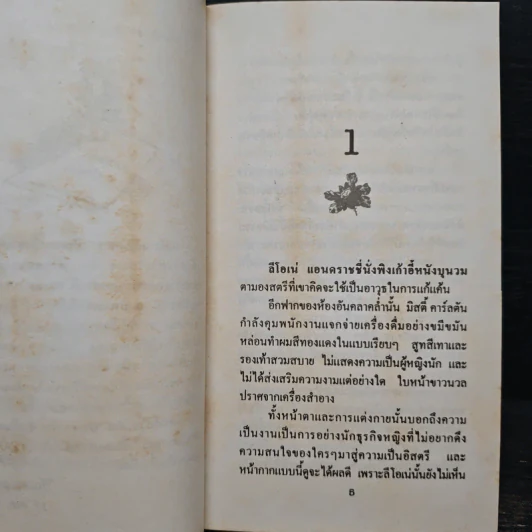 1
ลีโอเน่ แอนดราชชี่นั่งพิงเก้าอี้หนังบุนวม
ตามองสตรีที่เขาคิดจะใช้เป็นอาวุธในการแก้แค้น
อีกฟากของห้องอันคลาคล่ำนั้น มิสตี้ คาร์ลตัน
กำลังคุมพนักงานแจกจ่ายเครื่องดื่มอย่างขมีขมัน
หล่อนทำผมสีทองแดงในแบบเรียบๆ สูทสีเทาและ
รองเท้าสวมสบาย ไม่แสดงความเป็นผู้หญิงนัก และ
ไม่ได้ส่งเสริมความงามแต่อย่างใด ใบหน้าขาวนวล
ปราศจากเครื่องสำอาง
ทั้งหน้าตาและการแต่งกายนั้นบอกถึงความ
เป็นงานเป็นการอย่างนักธุรกิจหญิงที่ไม่อยากดึง
ความสนใจของใครๆมาสู่ความเป็นอิสตรี และ
หน้ากากแบบนี้ดูจะได้ผลดี เพราะลีโอเน่นั้นยังไม่เห็น
8